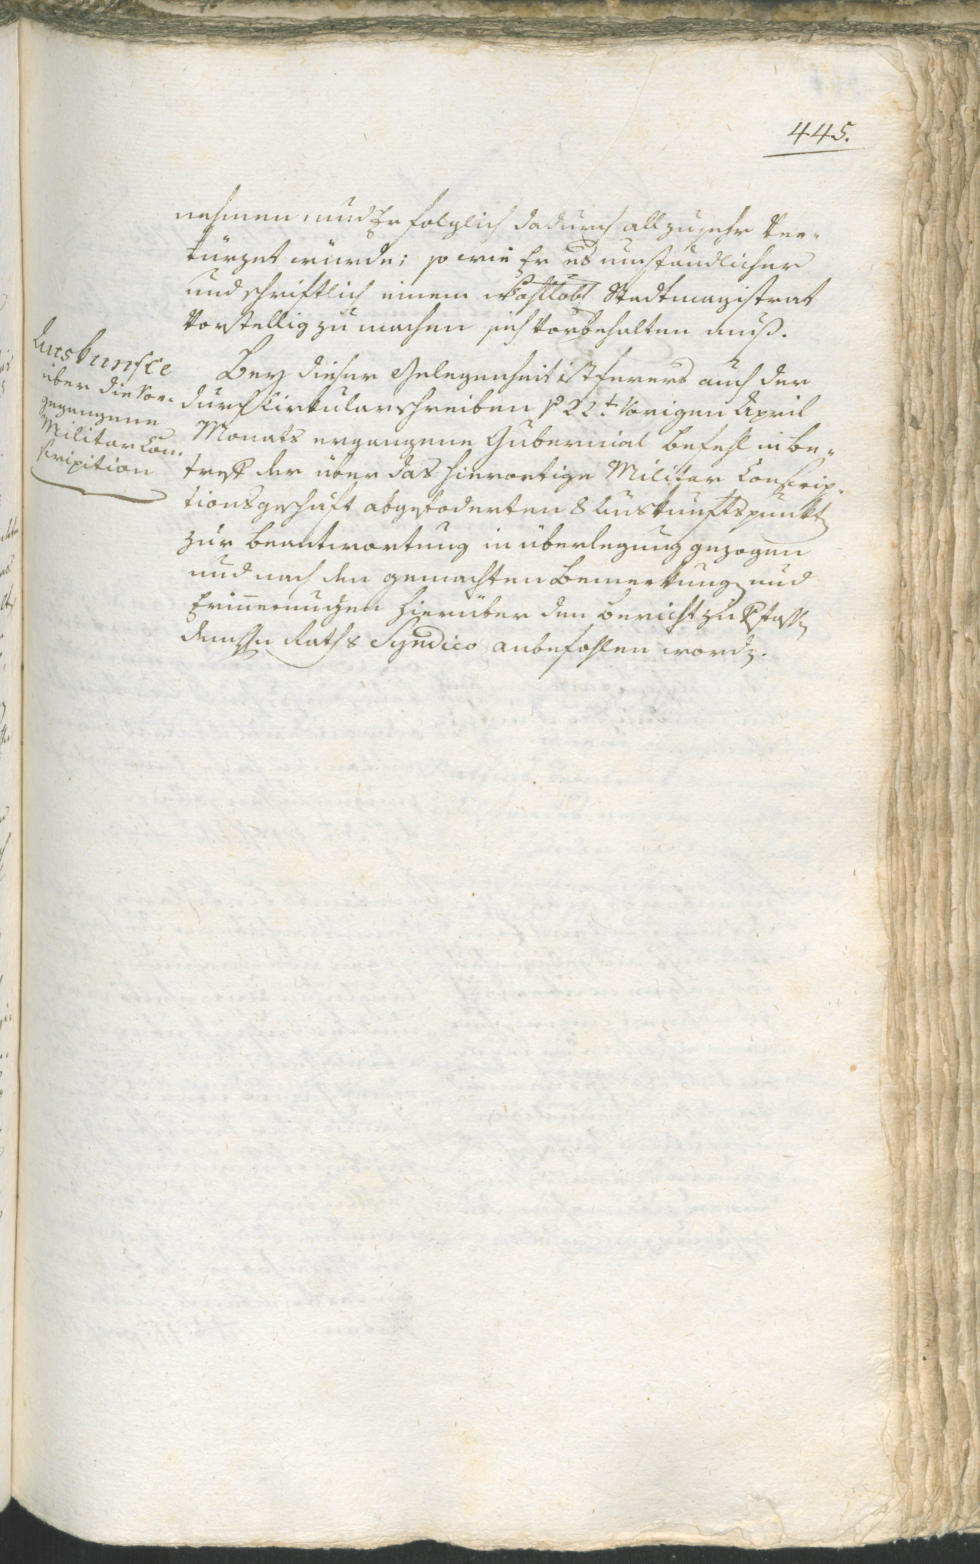 445.
nehmen, und Er folglich dadurch allzusehr ver-
kürzet würde; so wie Er es umständlicher
und schriftlich einem Wohllobl Stadtmagistrat
vorstellig zu machen sich vorbehalten muß.
Auskünfte
über die vor-
gegangene
Militar Con-
scripition
Bey dieser Gelegenheit ist ferers auch der
durch Cirkularschreiben 22t vorigen April
Monats ergangene Gubernial befehl in be-
treff der über das hierortige Militar Conscrip-
tionsgeschäft abgefoderten 8 Auskunftspunkt
zur beantwortung in überlegung gezogen
und nach den gemachten Bemerkung und
Erinnerungen hierüber den bericht zu
dem Hn Raths Syndico anbefohlen word.